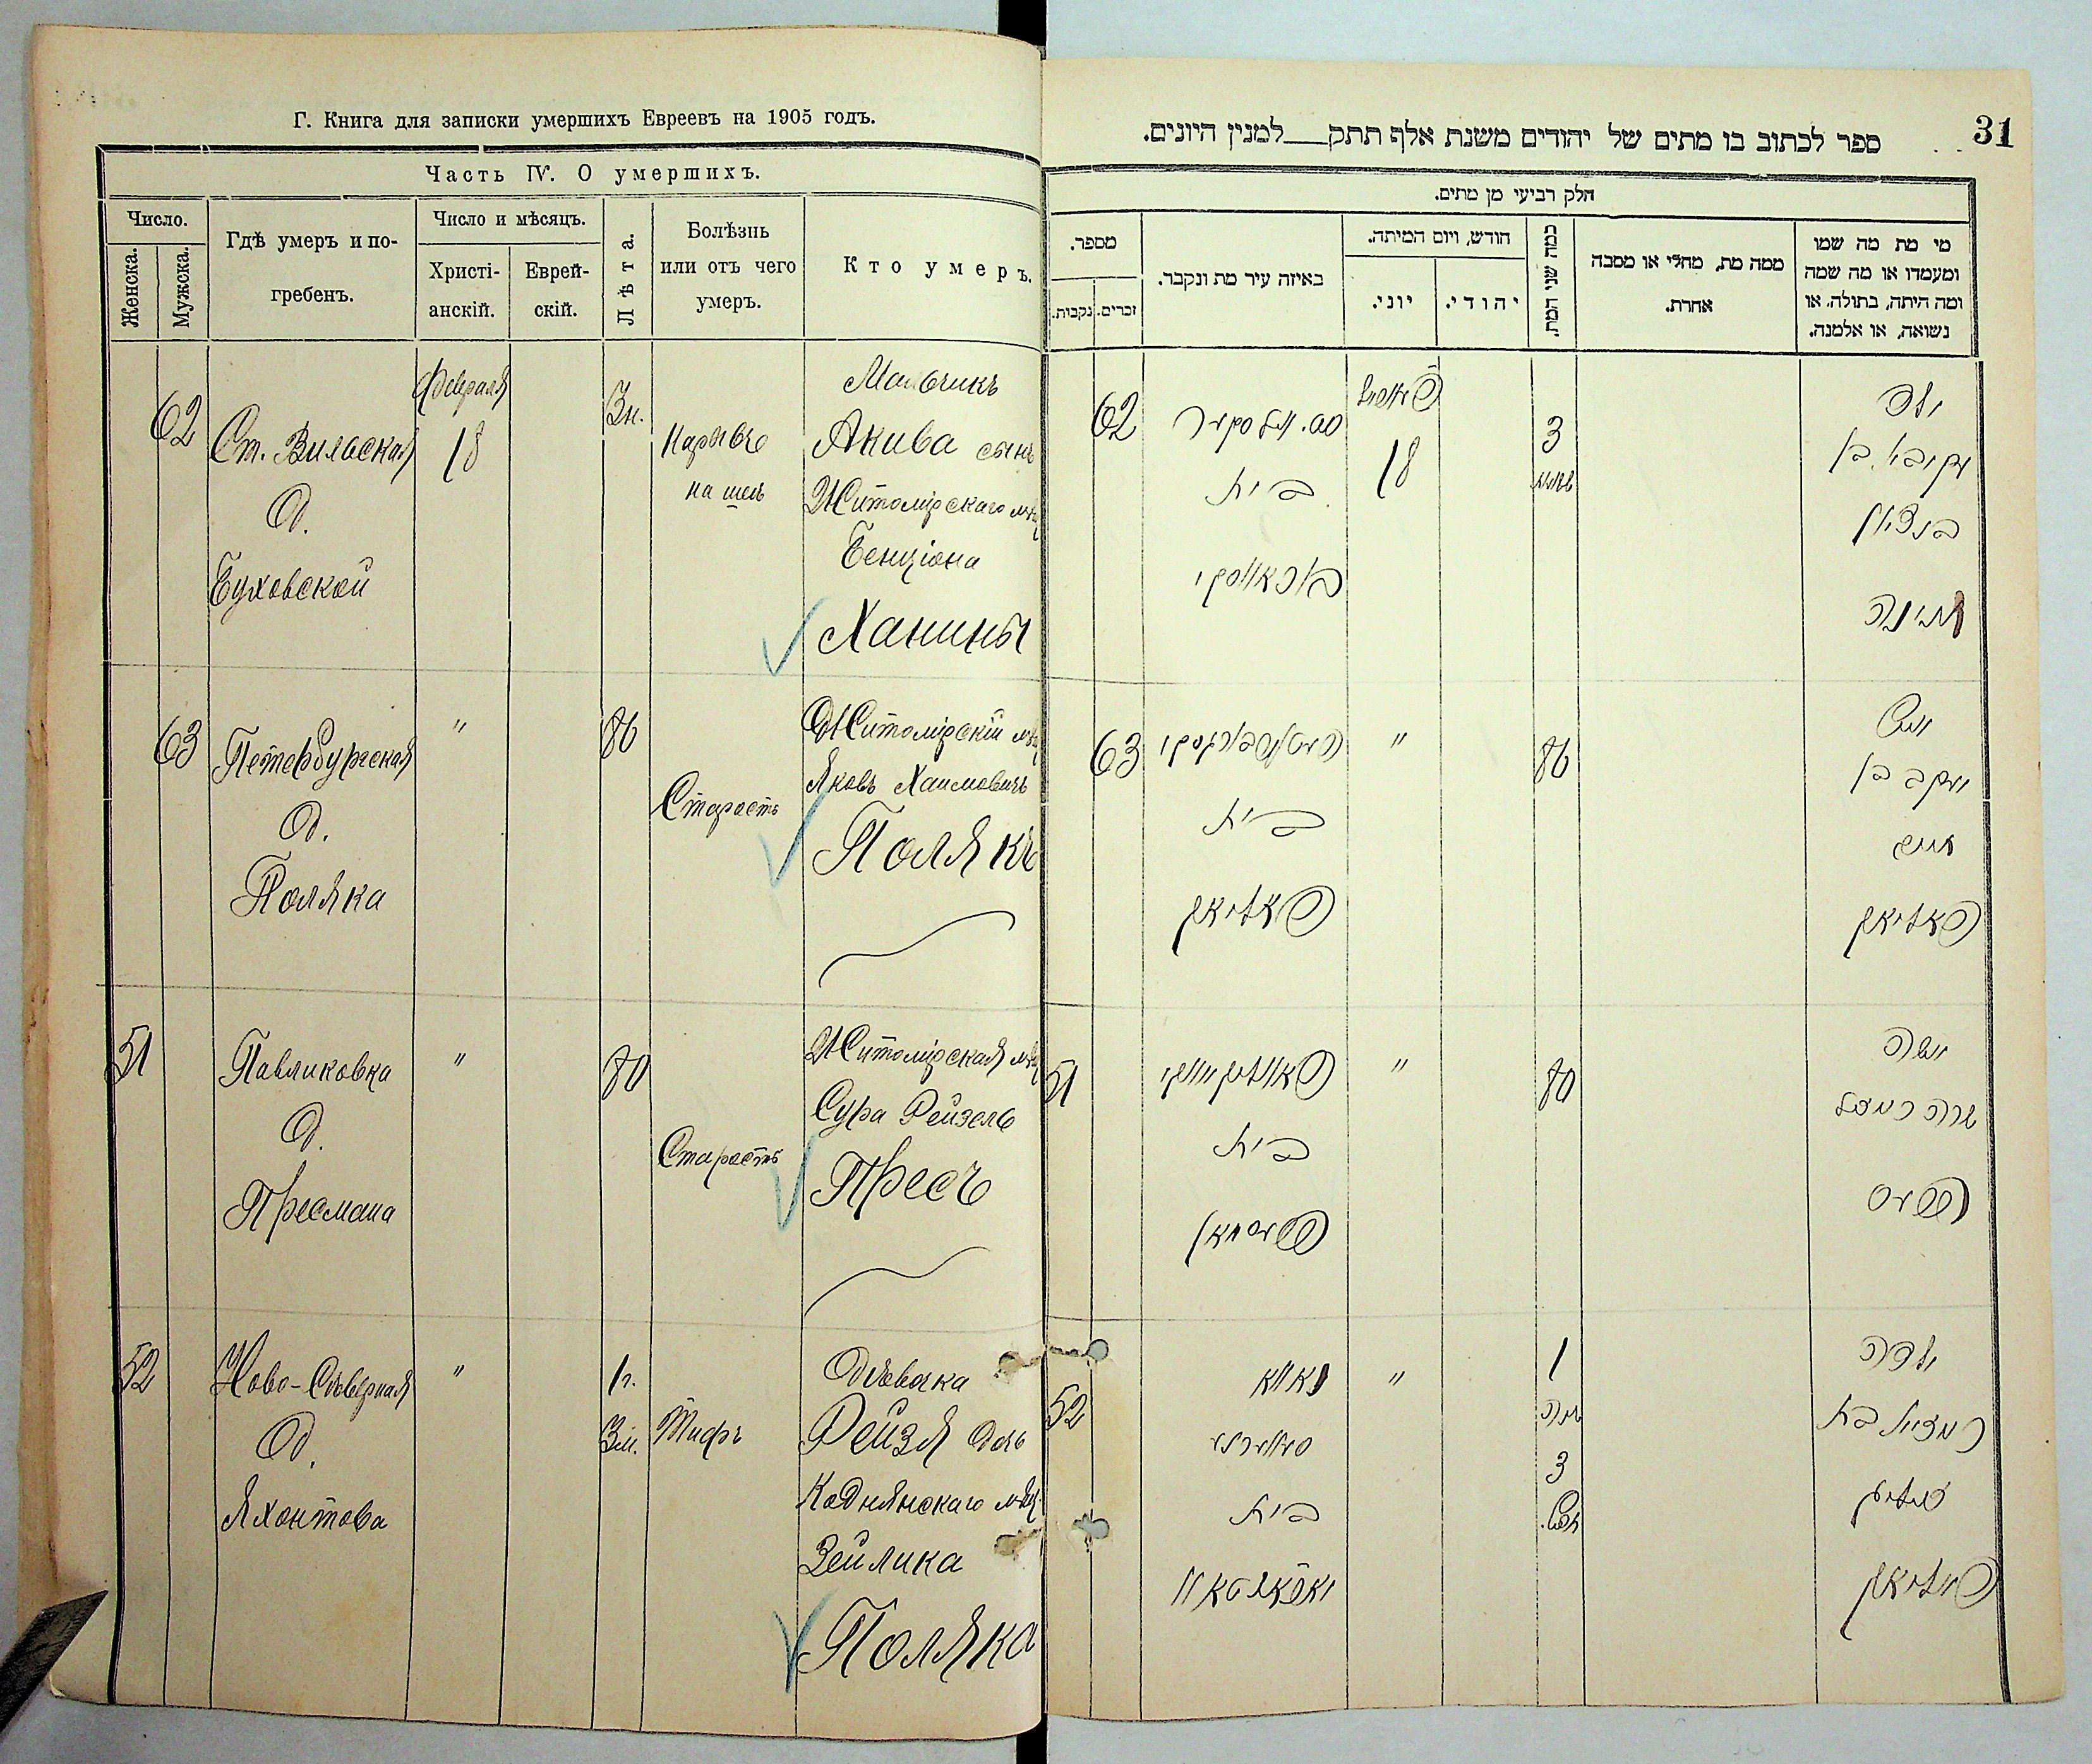 Г. Книга для записки умершихъ Евреевъ на 1905 годъ.
Часть IV. О умершихъ.
Число.
Женска.
Мужска.
Гдѣ умеръ и по-
гребенъ.
Число и мѣсяцъ.
Христі-
анскій.
Еврей-
скій.
Лѣта.
Болѣзнь
или отъ чего
умеръ.
Кто умеръ.
62
Ст. Вильская
д.
Буховской
Февраля
18
3 н.
Нарывъ
на шеѣ
Мальчикъ
Акива сынъ
Житомірскаго мѣщ
Бенціона
Ханины
63
Петербургская
д.
Поляка
"
86
Старость
Житомірскій мѣщ
Яковъ Хаимовичъ
Полякъ
51
Павликовка
д.
Пресмана
"
80
Старость
Житомірская мѣщ
Сура Рейзель
Пресъ
52
Ново-Сѣверная
д.
Яхонтова
"
1 г.
3 м.
Тифъ
Дѣвочка
Рейзя дочь
Коднянскаго мѣщ.
Зейлика
Поляка
31
ספר לכתוב בו מתים של יהודים משנת אלף תתק___למנין היונים.
חלק רביעי מן מתים.
מספר.
נקבות.
זכרים.
באיזה עיר מת ונקבר.
חודש, ויום המיתה.
יוני.
יהודי.
כמה שני המת.
ממה מת, מחלי או מסבה
אחרת.
מי מת מה שמו
ומעמדו או מה שמה
ומה היתה, בתולה, או
נשואה, או אלמנה.
62
בית
18
3
ילד
עקיבא בן
בנציון
חנינה
63
בית
פאליאק
"
86
איש
יעקב בן
חיים
פאליאק
51
בית
פרעסמאן
"
80
אשה
שרה רייזל
פרעס
52
נאווא
בית
"
1
שנה
3
חדש.
ילדה
בת
זעליק
פאליאק